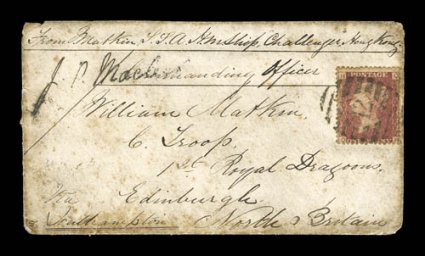 From Matkin, S.S.A. H.M. Ship, Challenger, Hong Kong.
Commanding Officer
William Matkin.
C. Troop.
1st Royal Dragoons.
Edinburgh.
Via
Southampton
North Britain
POSTAGE